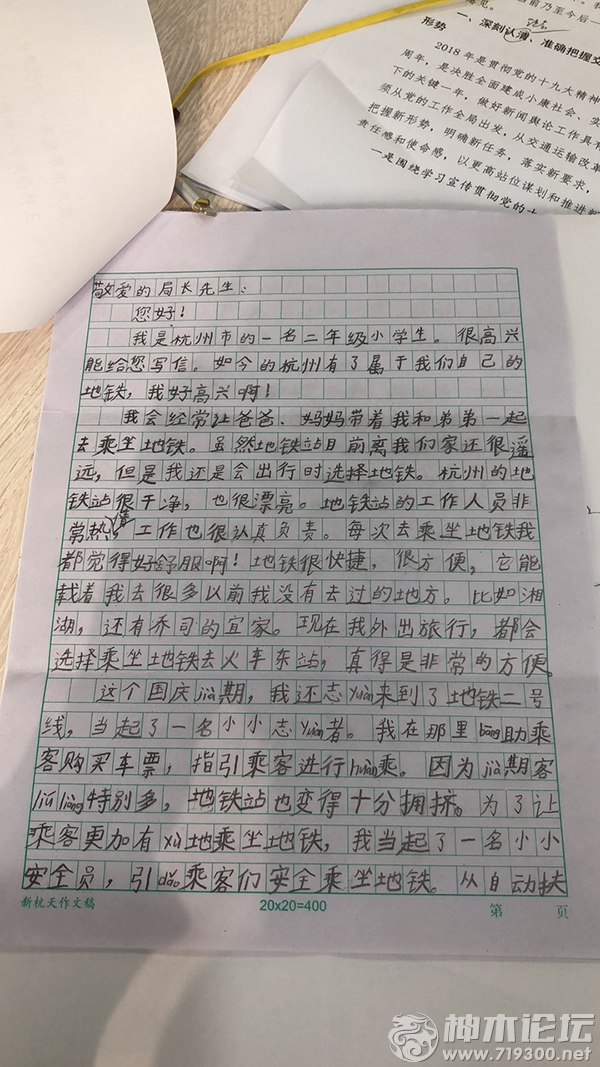 形势
一、深刻认清、准确把握交
2018年是贯彻党的十九大精神
周年，是决胜全面建成小康社会、实
下的关键一年，做好新闻舆论工作具有
须从党的工作全局出发，从交通运输改革
把握新形势，明确新任务，落实新要求，
责任感和使命感，以更高站位谋划和推进新
一是围绕学习宣传贯彻党的十
敬爱的局长先生：
您好！
我是杭州市的一名二年级小学生。很高兴
能给您写信。如今的杭州有了属于我们自己的
地铁，我好高兴啊！
我会经常让爸爸、妈妈带着我和弟弟一起
去乘坐地铁。虽然地铁站目前离我们家还很遥
远，但是我还是会出行时选择地铁。杭州的地
铁站很干净，也很漂亮。地铁站的工作人员非
常热情，工作也很认真负责。每次去乘坐地铁我
都觉得好舒服啊！地铁很快捷，很方便，它能
载着我去很多以前我没有去过的地方。比如湘
湖，还有乔司的宜家。现在我外出旅行，都会
选择乘坐地铁去火车东站，真得是非常的方便。
这个国庆jià期，我还志yuàn来到了地铁二号
线，当起了一名小小志yuàn者。我在那里bāng助乘
客购买车票，指引乘客进行huàn乘。因为jià期客
liú liàng特别多，地铁站也变得十分拥挤。为了让
乘客更加有xù地乘坐地铁，我当起了一名小小
安全员，引dǎo乘客们安全乘坐地铁。从自动扶
新杭天作文稿
20x20=400
第 页
神木论坛
www.719300.net